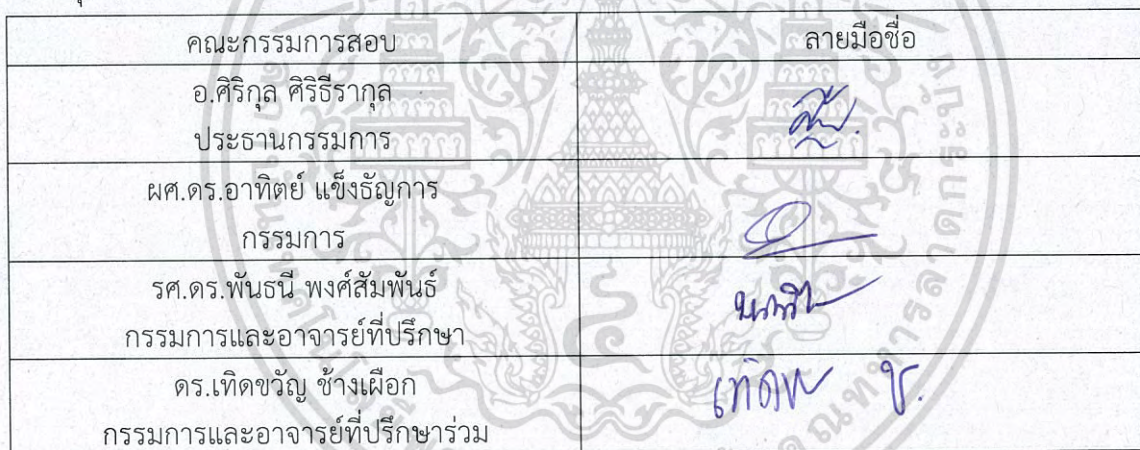 คณะกรรมการสอบ ลายมือชื่อ
อ.ศิริกุล ศิริธีรากุล
ประธานกรรมการ
ผศ.ดร.อาทิตย์ แข็งธัญการ
กรรมการ
รศ.ดร.พันธนี พงศ์สัมพันธ์
กรรมการและอาจารย์ที่ปรึกษา
ดร.เทิดขวัญ ช้างเผือก
กรรมการและอาจารย์ที่ปรึกษาร่วม